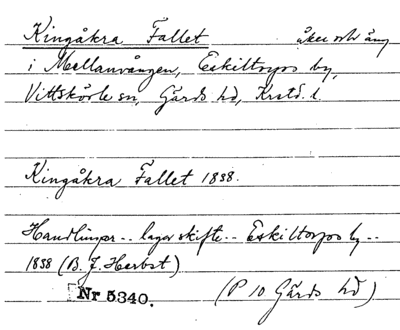 Kingåkra Fallet åker och äng
i Mellanvången, Eskiltorps by,
Vittskövle sn, Gärds hd, Krstd. l.
Kingåkra Fallet 1838.
Handlingar.. laga skifte.. Eskiltorps by..
1838 (B. J. Herbst)
Nr 5340.
(P 10 Gärds hd)